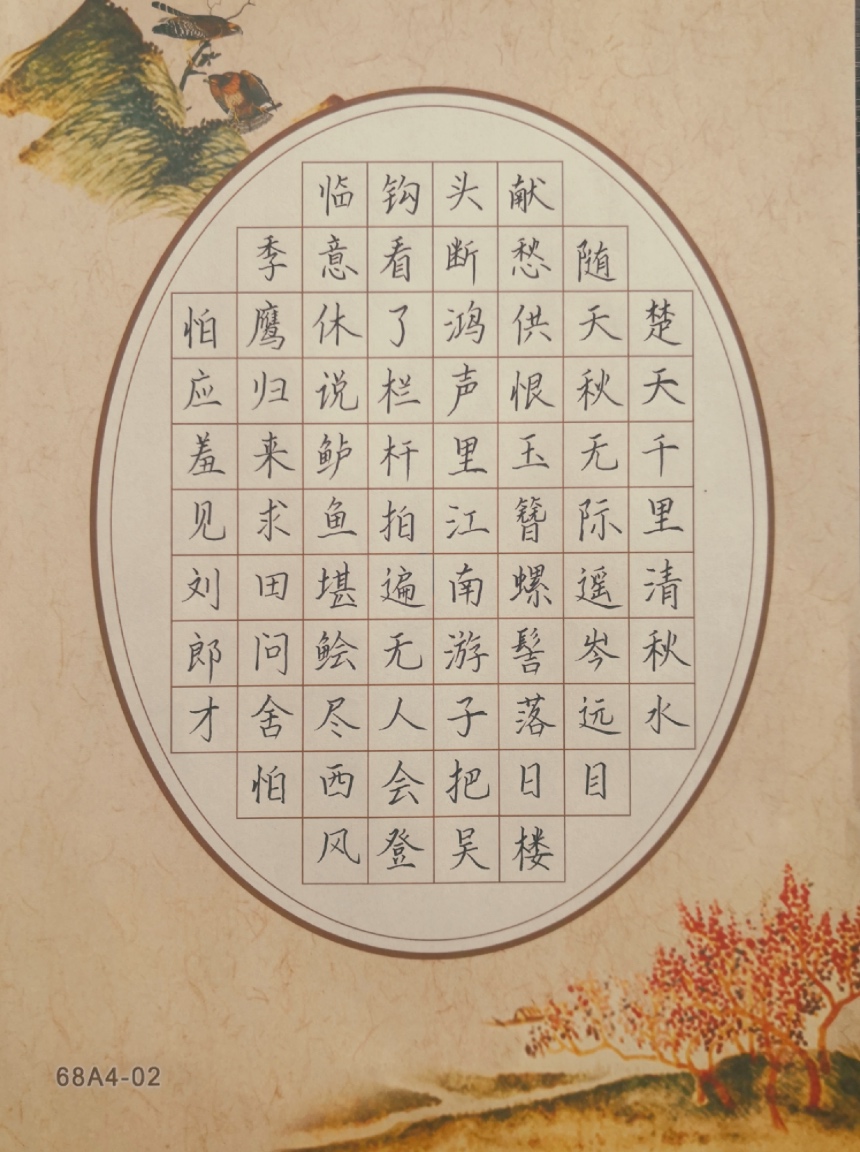 楚天千里清秋水
随天秋无际遥岑远目
献愁供恨玉簪螺髻落日楼
头断鸿声里江南游子把吴
钩看了栏杆拍遍无人会登
临意休说鲈鱼堪鲙尽西风
季鹰归来求田问舍怕
怕应羞见刘郎才
68A4-02